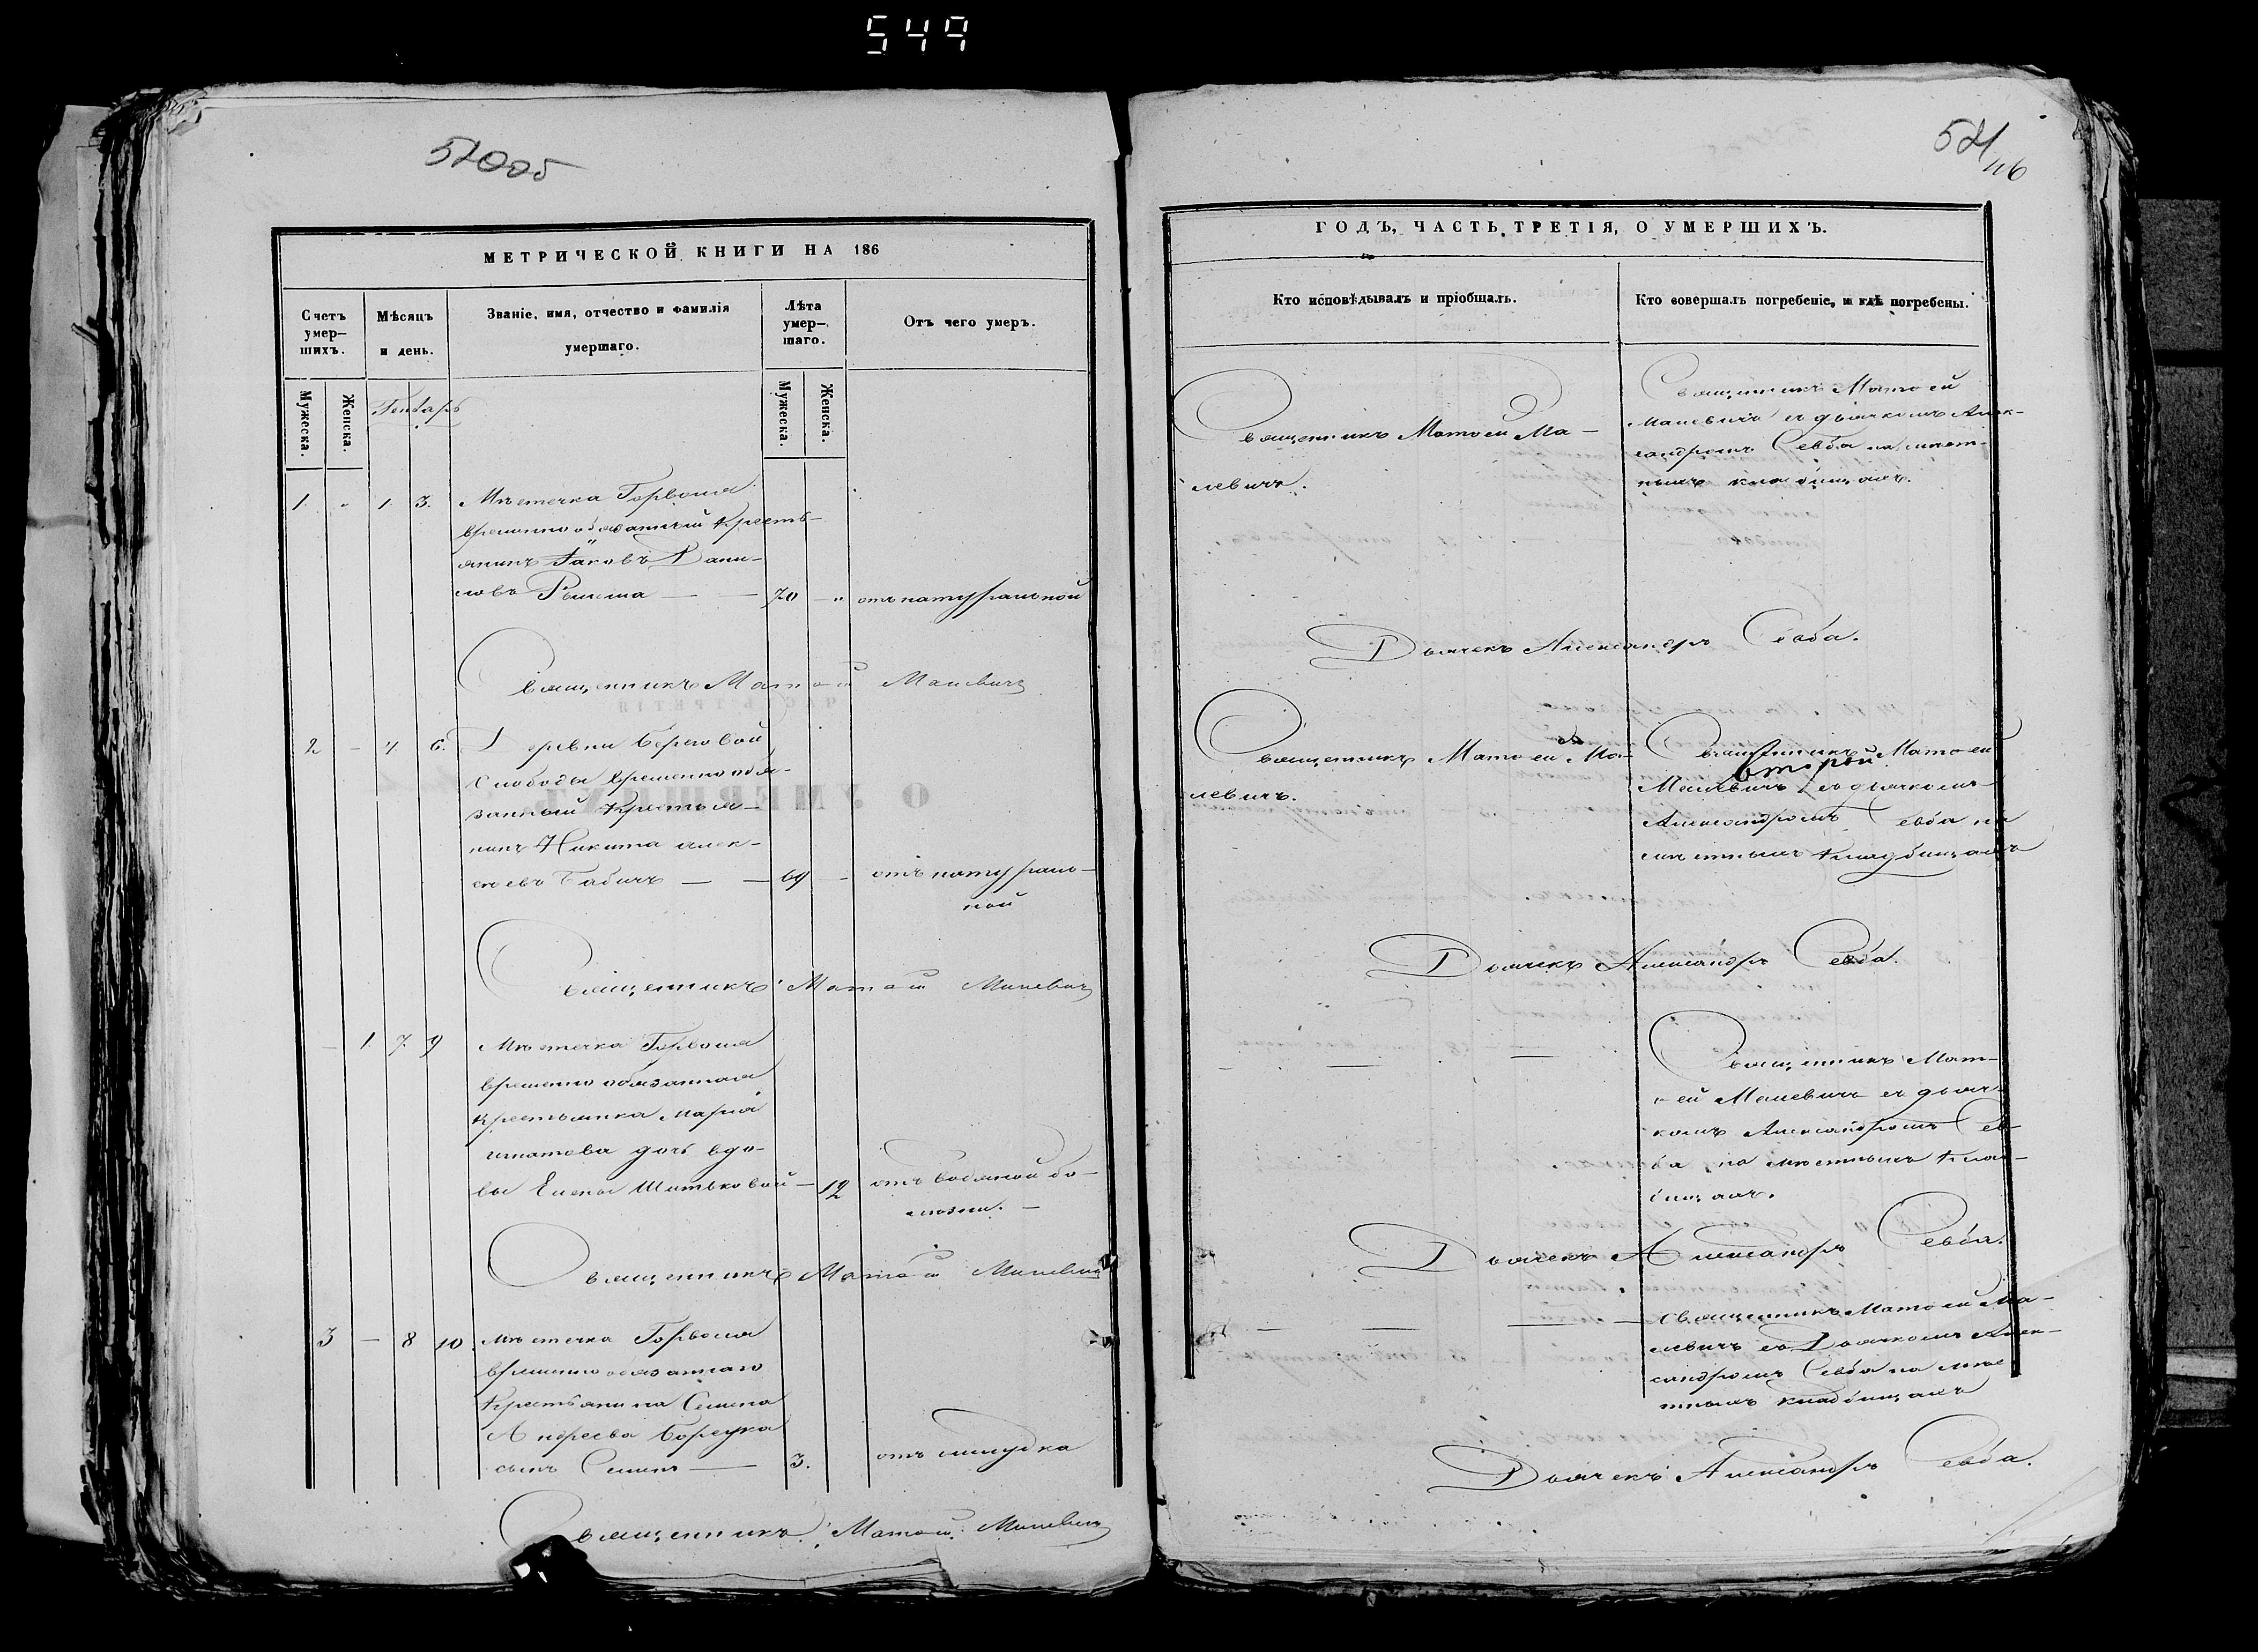 549
520об
МЕТРИЧЕСКОЙ КНИГИ НА 186
Счетъ умер—шихъ.
Мѣсяцъ и день.
Званіе, имя, отчество и фамилія умершаго.
Лѣта умер—шаго.
Отъ чего умеръ.
Мужеска.
Женска.
Мужеска.
Женска.
Генварь
1. " 1 3. Мѣстечка Горволя
временнообязанный крестья-
янинъ Іаковъ Дани-
ловъ — — 70 — " отъ натуральной
Священникъ Матѳей Малевичъ
2 — 4 6. Деревни Береговой
Слободы временнообя-
занный крестья-
нинъ Никита Алек-
сѣевъ Бабичъ — — 69 — отъ натураль-
ной
Священникъ Матѳей Малевичъ
— 1. 7. 9 Мѣстечка Горволя
временнообязанная
крестьянка Марія
Игнатова дочь вдо-
вы Елены Шитьковой — 12 отъ водяной бо-
лѣзни. —
Священникъ Матѳей Малевичъ
3 — 8 10. Мѣстечка Горволя
временнообязаннаго
крестьянина Семена
Андреева
сынъ — 3. отъ желудка
Священникъ Матѳей Малевичъ
521
46
ГОДЪ, ЧАСТЬ ТРЕТІЯ, О УМЕРШИХЪ.
Кто исповѣдывалъ и пріобщалъ.
Кто совершалъ погребеніе, и гдѣ погребены.
Священникъ Матѳей Ма—
левичъ.
Священникъ Матѳей
Малевичъ съ дьячкомъ Алек-
сандромъ Севба на мѣст-
ныхъ кладбищахъ.
Дьячекъ Александръ Севба.
Священникъ Матѳей Ма-
левичъ.
Священникъ Матѳей
второй
Малевичъ съ дьячкомъ
Александромъ Севба на
мѣстныхъ кладбищахъ
Дьячекъ Александръ Севба.
— — Священникъ Мат-
ѳей Малевичъ съ дьяч-
комъ Александромъ Сев-
ба на мѣстныхъ клад-
бищахъ.
Дьячекъ Александръ Севба.
— — — — Священникъ Матѳей Ма-
левичъ съ Дьячкомъ Алек-
сандромъ Севба на мѣс
тныхъ кладбищахъ
Дьячекъ Александръ Севба.